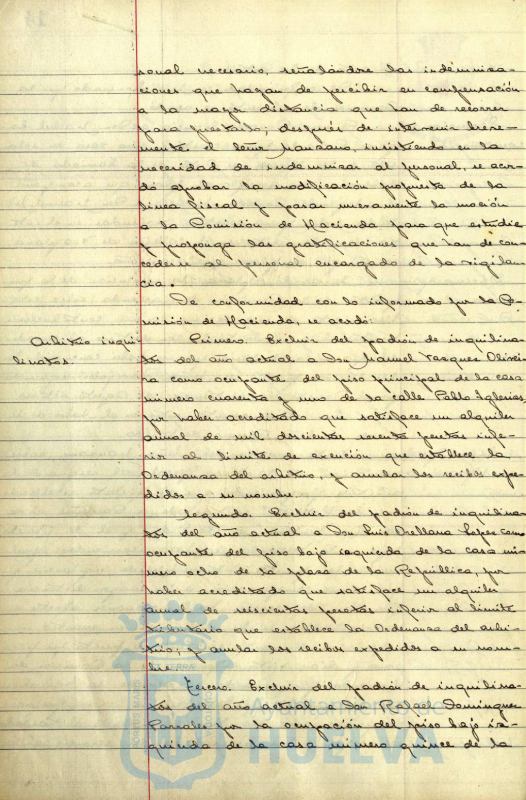 sonal necesario, señalándose las indemniza-
ciones que hayan de percibir en compensación
a la mayor distancia que han de recorrer
para prestarlo; después de intervenir breve-
mente el Señor Manzano, insistiendo en la
necesidad de indemnizar al personal, se acor-
dó aprobar la modificación propuesta de la
línea fiscal y pasar nuevamente la moción
a la Comisión de Hacienda para que estudie
y proponga las gratificaciones que han de con-
cederse al personal encargado de la vigilan-
cia.
De conformidad con lo informado por la Co-
misión de Hacienda, se acordó:
Arbitrio inqui-
linatos.
Primero. Excluir del padrón de inquilina-
tos del año actual a Don Manuel Vasques Olivei-
ra como ocupante del piso principal de la casa
número cuarenta y uno de la calle Pablo Iglesias,
por haber acreditado que satisface un alquiler
anual de mil doscientas sesenta pesetas infe-
rior al límite de exención que establece la
Ordenanza del arbitrio, y anular los recibos expe-
didos a su nombre.
Segundo. Excluir del padrón de inquilina-
tos del año actual a Don Luis Orellana Lopez como
ocupante del piso bajo izquierda de la casa nú-
mero ocho de la plaza de la República, por
haber acreditado que satisface un alquiler
anual de seiscientas pesetas inferior al límite
tributario que establece la Ordenanza del arbi-
trio; y anular los recibos expedidos a su nom-
bre.
Tercero. Excluir del padrón de inquilina-
tos del año actual a Don Rafael Dominguez
Parrales por la ocupación del piso bajo iz-
quierda de la casa número quince de la
Ayuntamiento
HUELVA